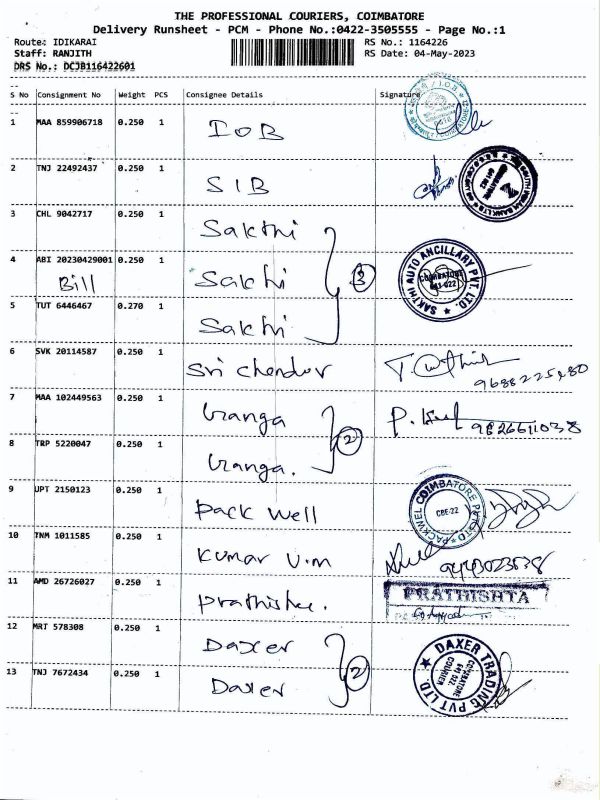 THE PROFESSIONAL COURIERS, COIMBATORE
Delivery Runsheet - PCM - Phone No.:0422-3505555 - Page No.:1
Route: IDIKARAI RS No.: 1164226
Staff: RANJITH RS Date: 04-May-2023
DRS No.: DCJB116422601
S No Consignment No Weight PCS Consignee Details Signature
1 MAA 859906718 0.250 1 IOB
2 TNJ 22492437 0.250 1 SIB
3 CHL 9042717 0.250 1 Sakthi
4 ABI 20230429001 0.250 1 Sakthi 3
Bill
SAKTHI AUTO ANCILLARY PVT. LTD.
COIMBATORE
641-022
5 TUT 6446467 0.270 1 Sakthi
6 SVK 20114587 0.250 1 Sri Chendur
7 MAA 102449563 0.250 1 Ganga 2
8 TRP 5220047 0.250 1 Ganga.
9 UPT 2150123 0.250 1 Pack Well
CBE-22
10 TNM 1011585 0.250 1 Kumar V.M
11 AMD 26726027 0.250 1 Prathishta.
PRATHISHTA
12 MRT 578308 0.250 1 Daxer 2
13 TNJ 7672434 0.250 1 Daxer
DAXER TRADING PVT LTD
COIMBATORE
641 022.
COURIER